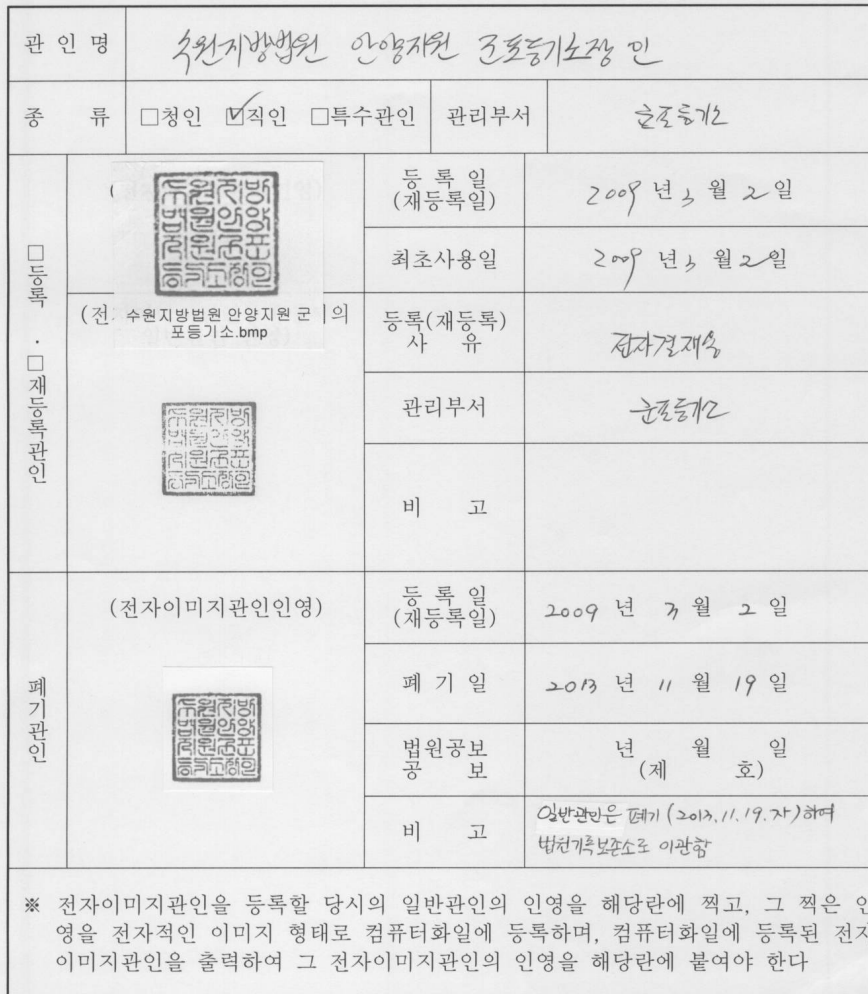 관 인 명 수원지방법원 안양지원 군포등기소장 인
종 류 □청인 ☑직인 □특수관인 관리부서 군포등기소
□등록 · □재등록관인
(
수원지방법원 안양지원 군
포등기소.bmp
(전 의
등 록 일
(재등록일)
2009 년 3 월 2 일
최초사용일 2009 년 3 월 2 일
등록(재등록)
사 유
전자결재용
관리부서 군포등기소
비 고
폐기관인
(전자이미지관인인영)
등 록 일
(재등록일)
2009 년 3 월 2 일
폐 기 일 2013 년 11 월 19 일
법원공보
공 보
년 월 일
(제 호)
비 고
일반관인은 폐기(2013.11.19.자)하여
법원기록보존소로 이관함
※ 전자이미지관인을 등록할 당시의 일반관인의 인영을 해당란에 찍고, 그 찍은 인
영을 전자적인 이미지 형태로 컴퓨터화일에 등록하며, 컴퓨터화일에 등록된 전자
이미지관인을 출력하여 그 전자이미지관인의 인영을 해당란에 붙여야 한다